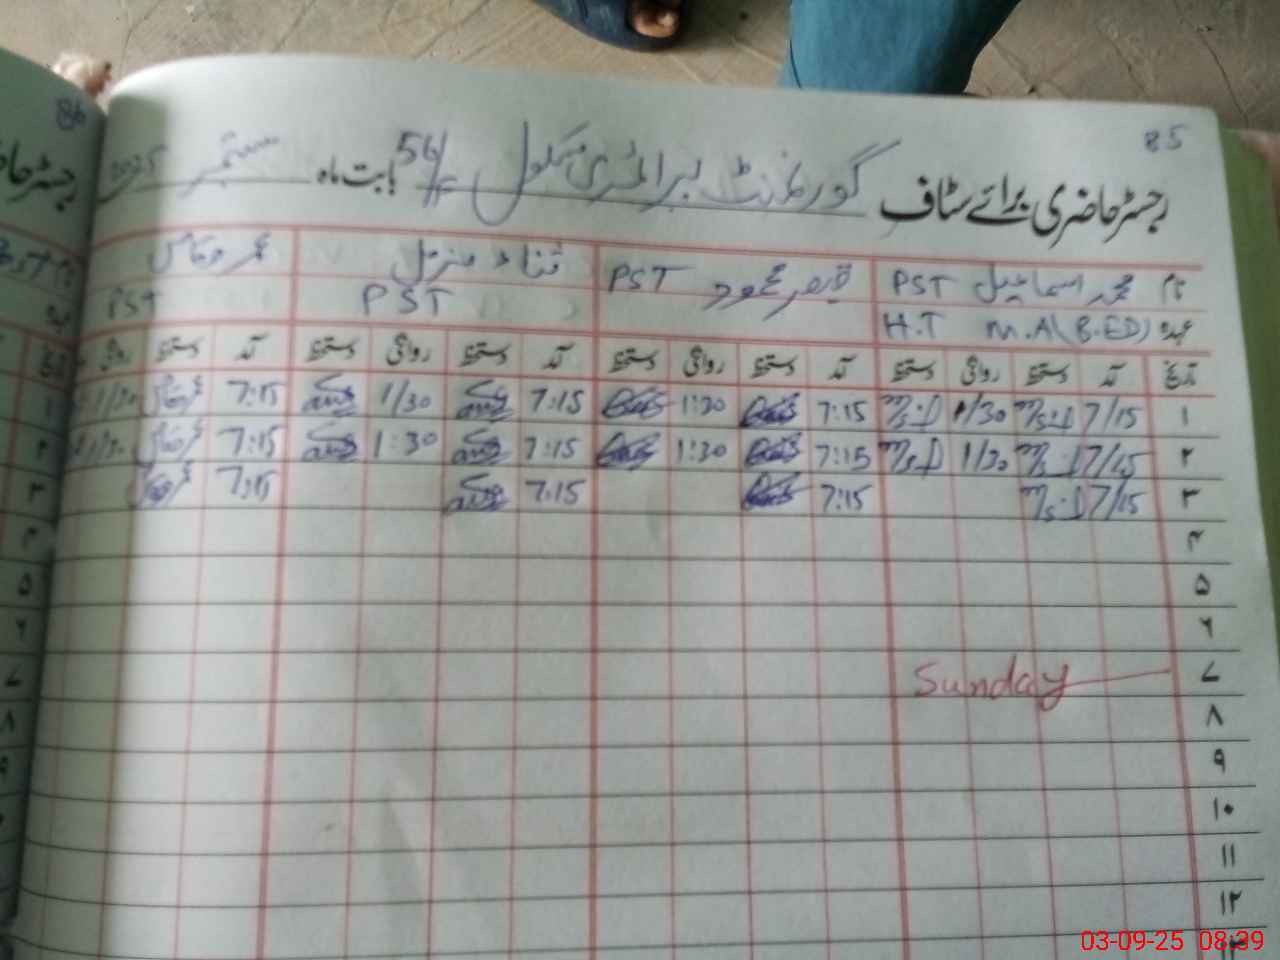 85
رجسٹر حاضری برائے سٹاف گورنمنٹ پرائمری سکول 56/ بابت ماہ ستمبر 2025
نام محمد اسماعیل PST قیصر محمود PST ثناء مزمل عمر وقاص
عہدہ M.A(B.ED) H.T PST PST
تاریخ آمد دستخط روانگی دستخط آمد دستخط روانگی دستخط آمد دستخط روانگی دستخط آمد دستخط روانگی
۱ 7/15 1/30 7:15 1:30 7:15 1/30 7:15 1/30
۲ 7/15 1/30 7:15 1:30 7:15 1:30 7:15 1/30
۳ 7/15 7:15 7:15 7:15
۴
۵
۶
۷ Sunday
۸
۹
۱۰
۱۱
۱۲
۱۳
86
رجسٹر حاضر
03-09-25 08:39